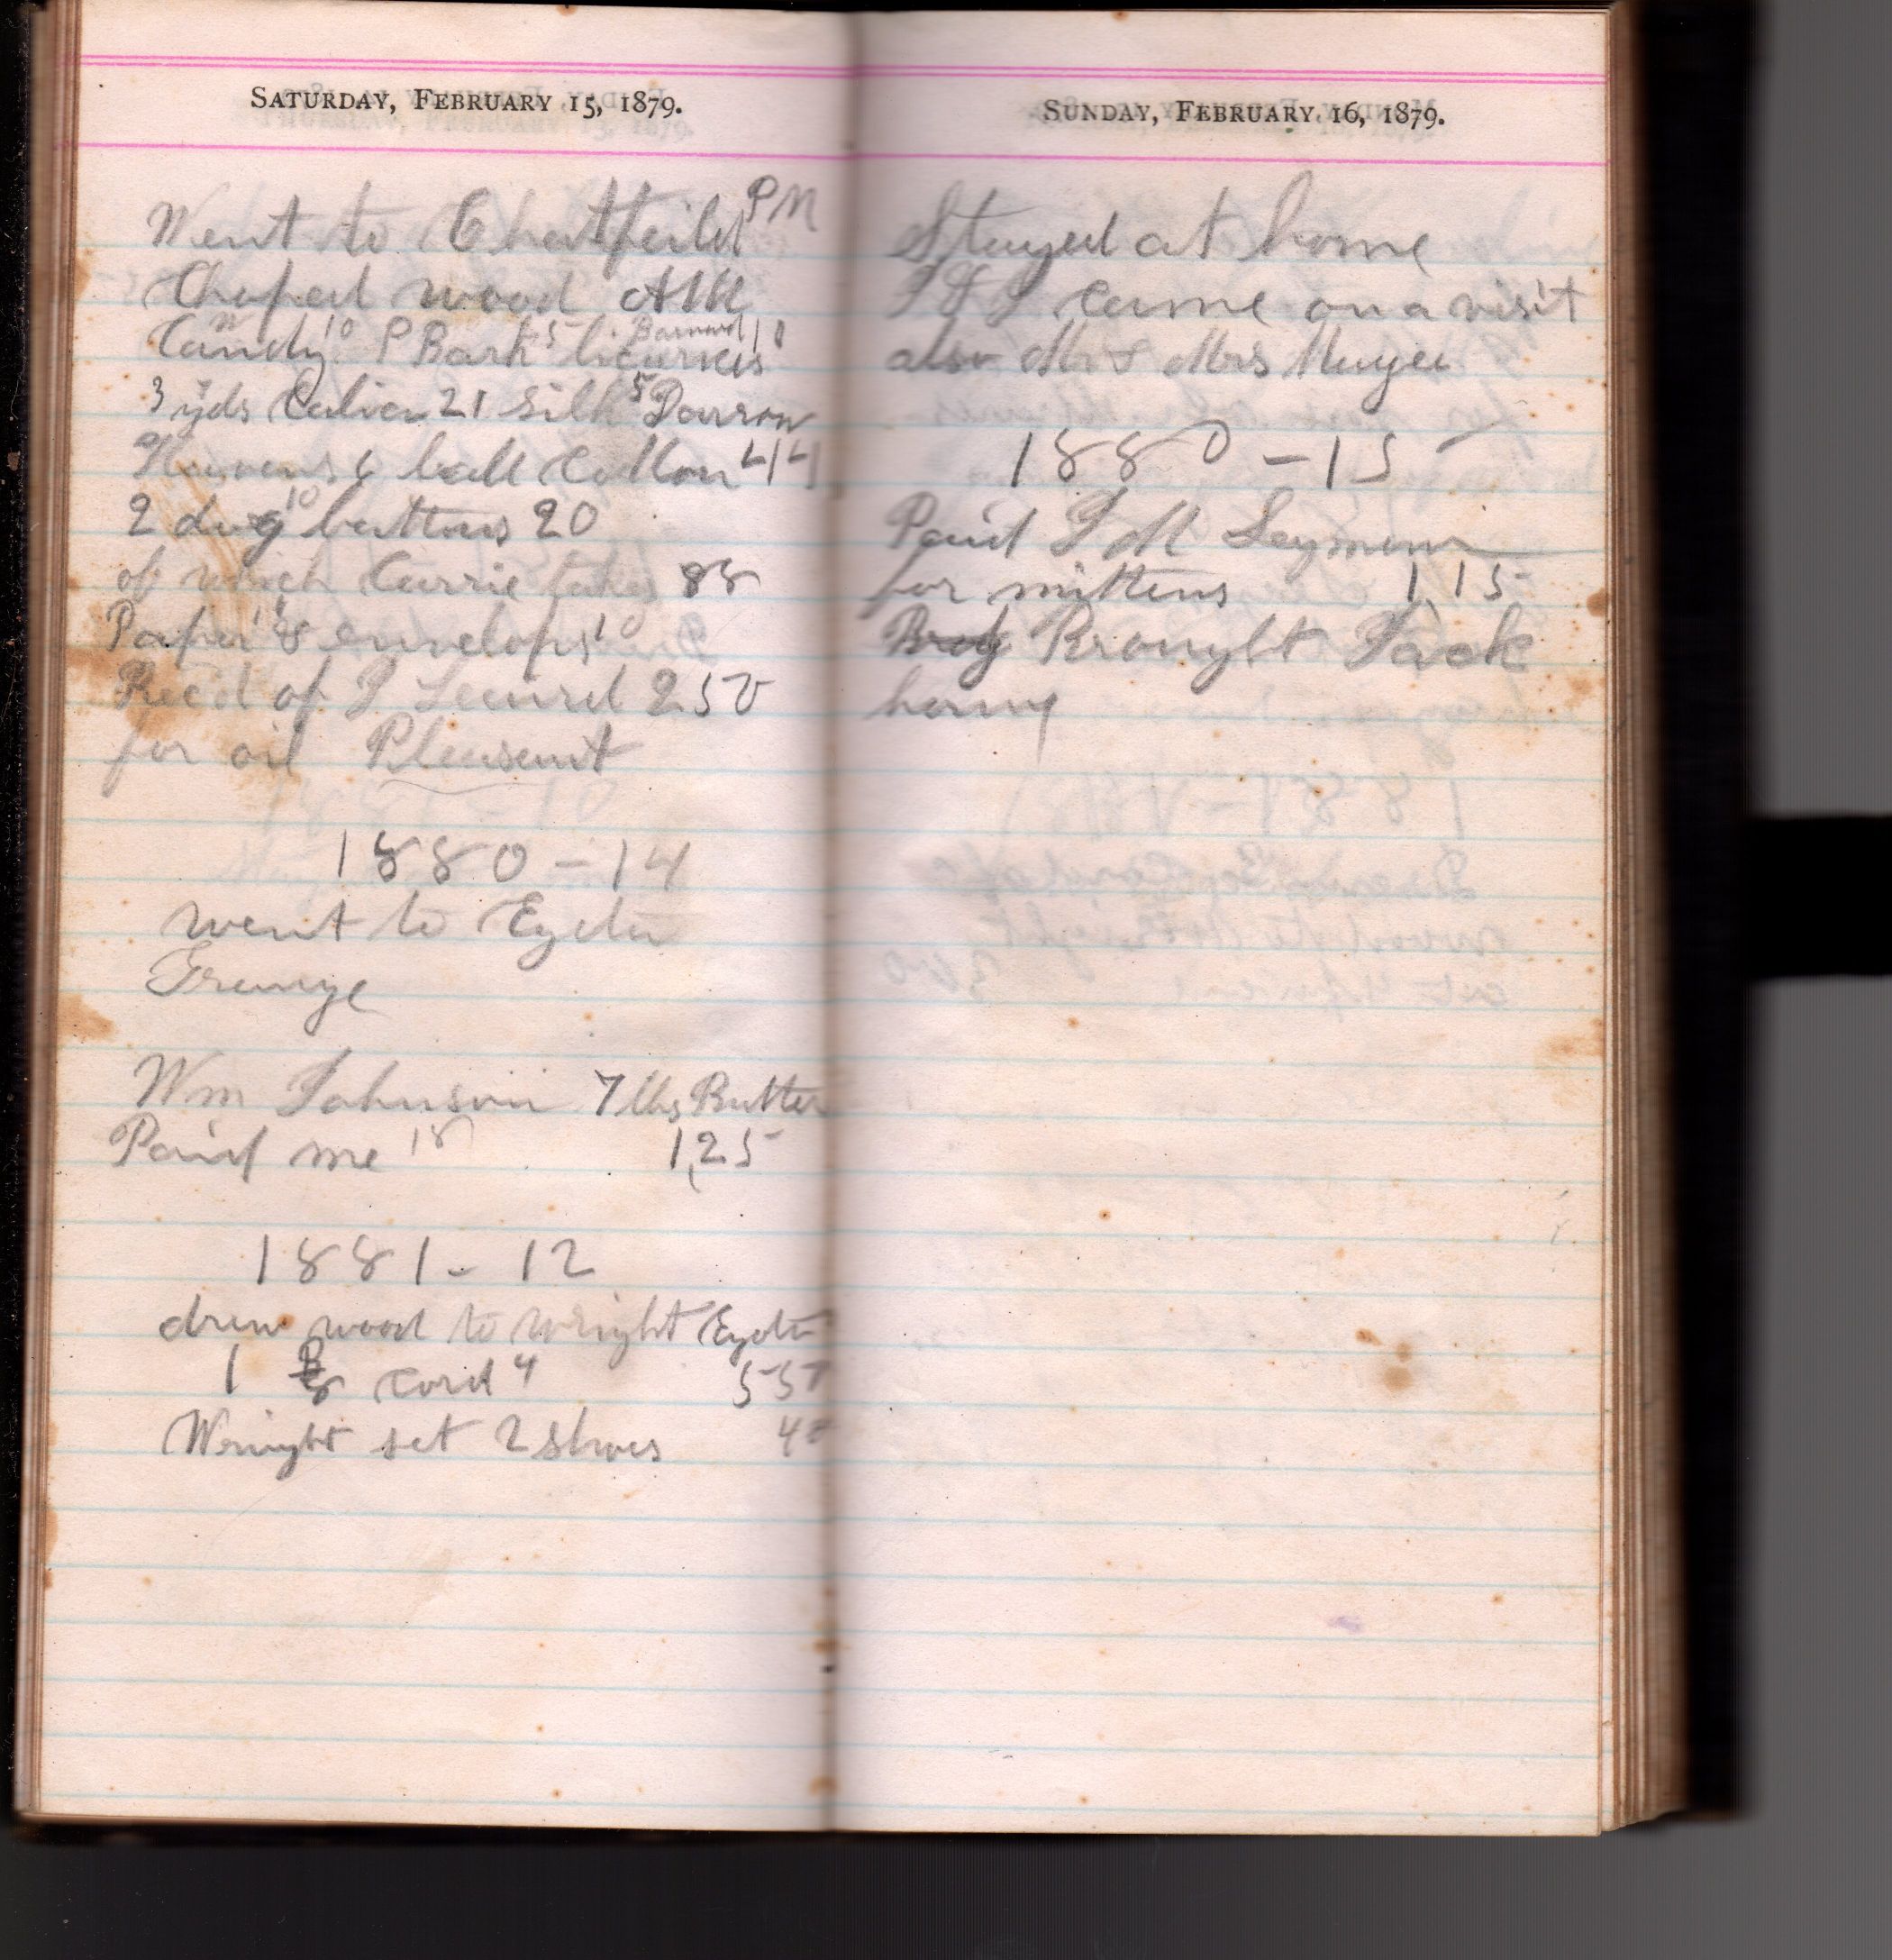 SATURDAY, FEBRUARY 15, 1879.
Went to Chatfeild PM
Choped wood AM
Candy 10 P Bark 5 Barnard 10
3 yds Calico 21 Silk 5 Darrow
6 ball Cotton
2 buttons 20
of which Carrie takes 88
Paper 8 envelops 10
Rec'd of J 2 50
for oil Pleasent
1880 - 14
went to Eyota
Grange
Wm Johnson 7 lbs Butter
Paid me 18 1,25
1881 - 12
drew wood to Wright Eyota
1 cord 4
Wright set 2 shoes
SUNDAY, FEBRUARY 16, 1879.
Stayed at home
came on a visit
also Mr & Mrs
1880 - 15
Paid J M Seymour
for mittens 1,15
Brought Jack
home